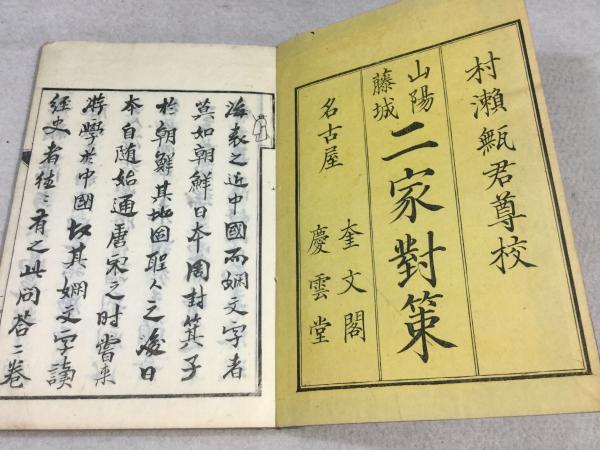 村瀨甒君尊校
山陽
藤城
二家對策
名古屋
奎文閣
慶雲堂
海表之近中國而嫻文字者
莫如朝鮮日本周封箕子
於朝鮮其地固聖人之後日
本自隨始通唐宋之時嘗来
游學於中國故其嫻文字讀
經史者往〻有之此問答二卷